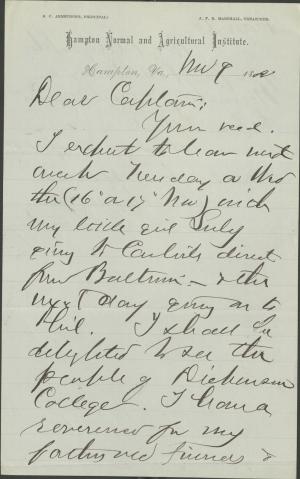 S. C. ARMSTRONG, PRINCIPAL. J. F. B. MARSHALL, TREASURER.
Hampton Normal and Agricultural Institute.
Hampton, Va., Nov 9 1880
Dear Captain;
Yours recd.
I expect to leave next
week Tuesday or Wed
the (16" or 17" Nov) with
my little girl
going to Carlisle direct
from Baltimore - & the
next day going on to
Phil. I shall be
delighted to see the
people of Dickinson
College. I have a
reverence for my
father's old friends &